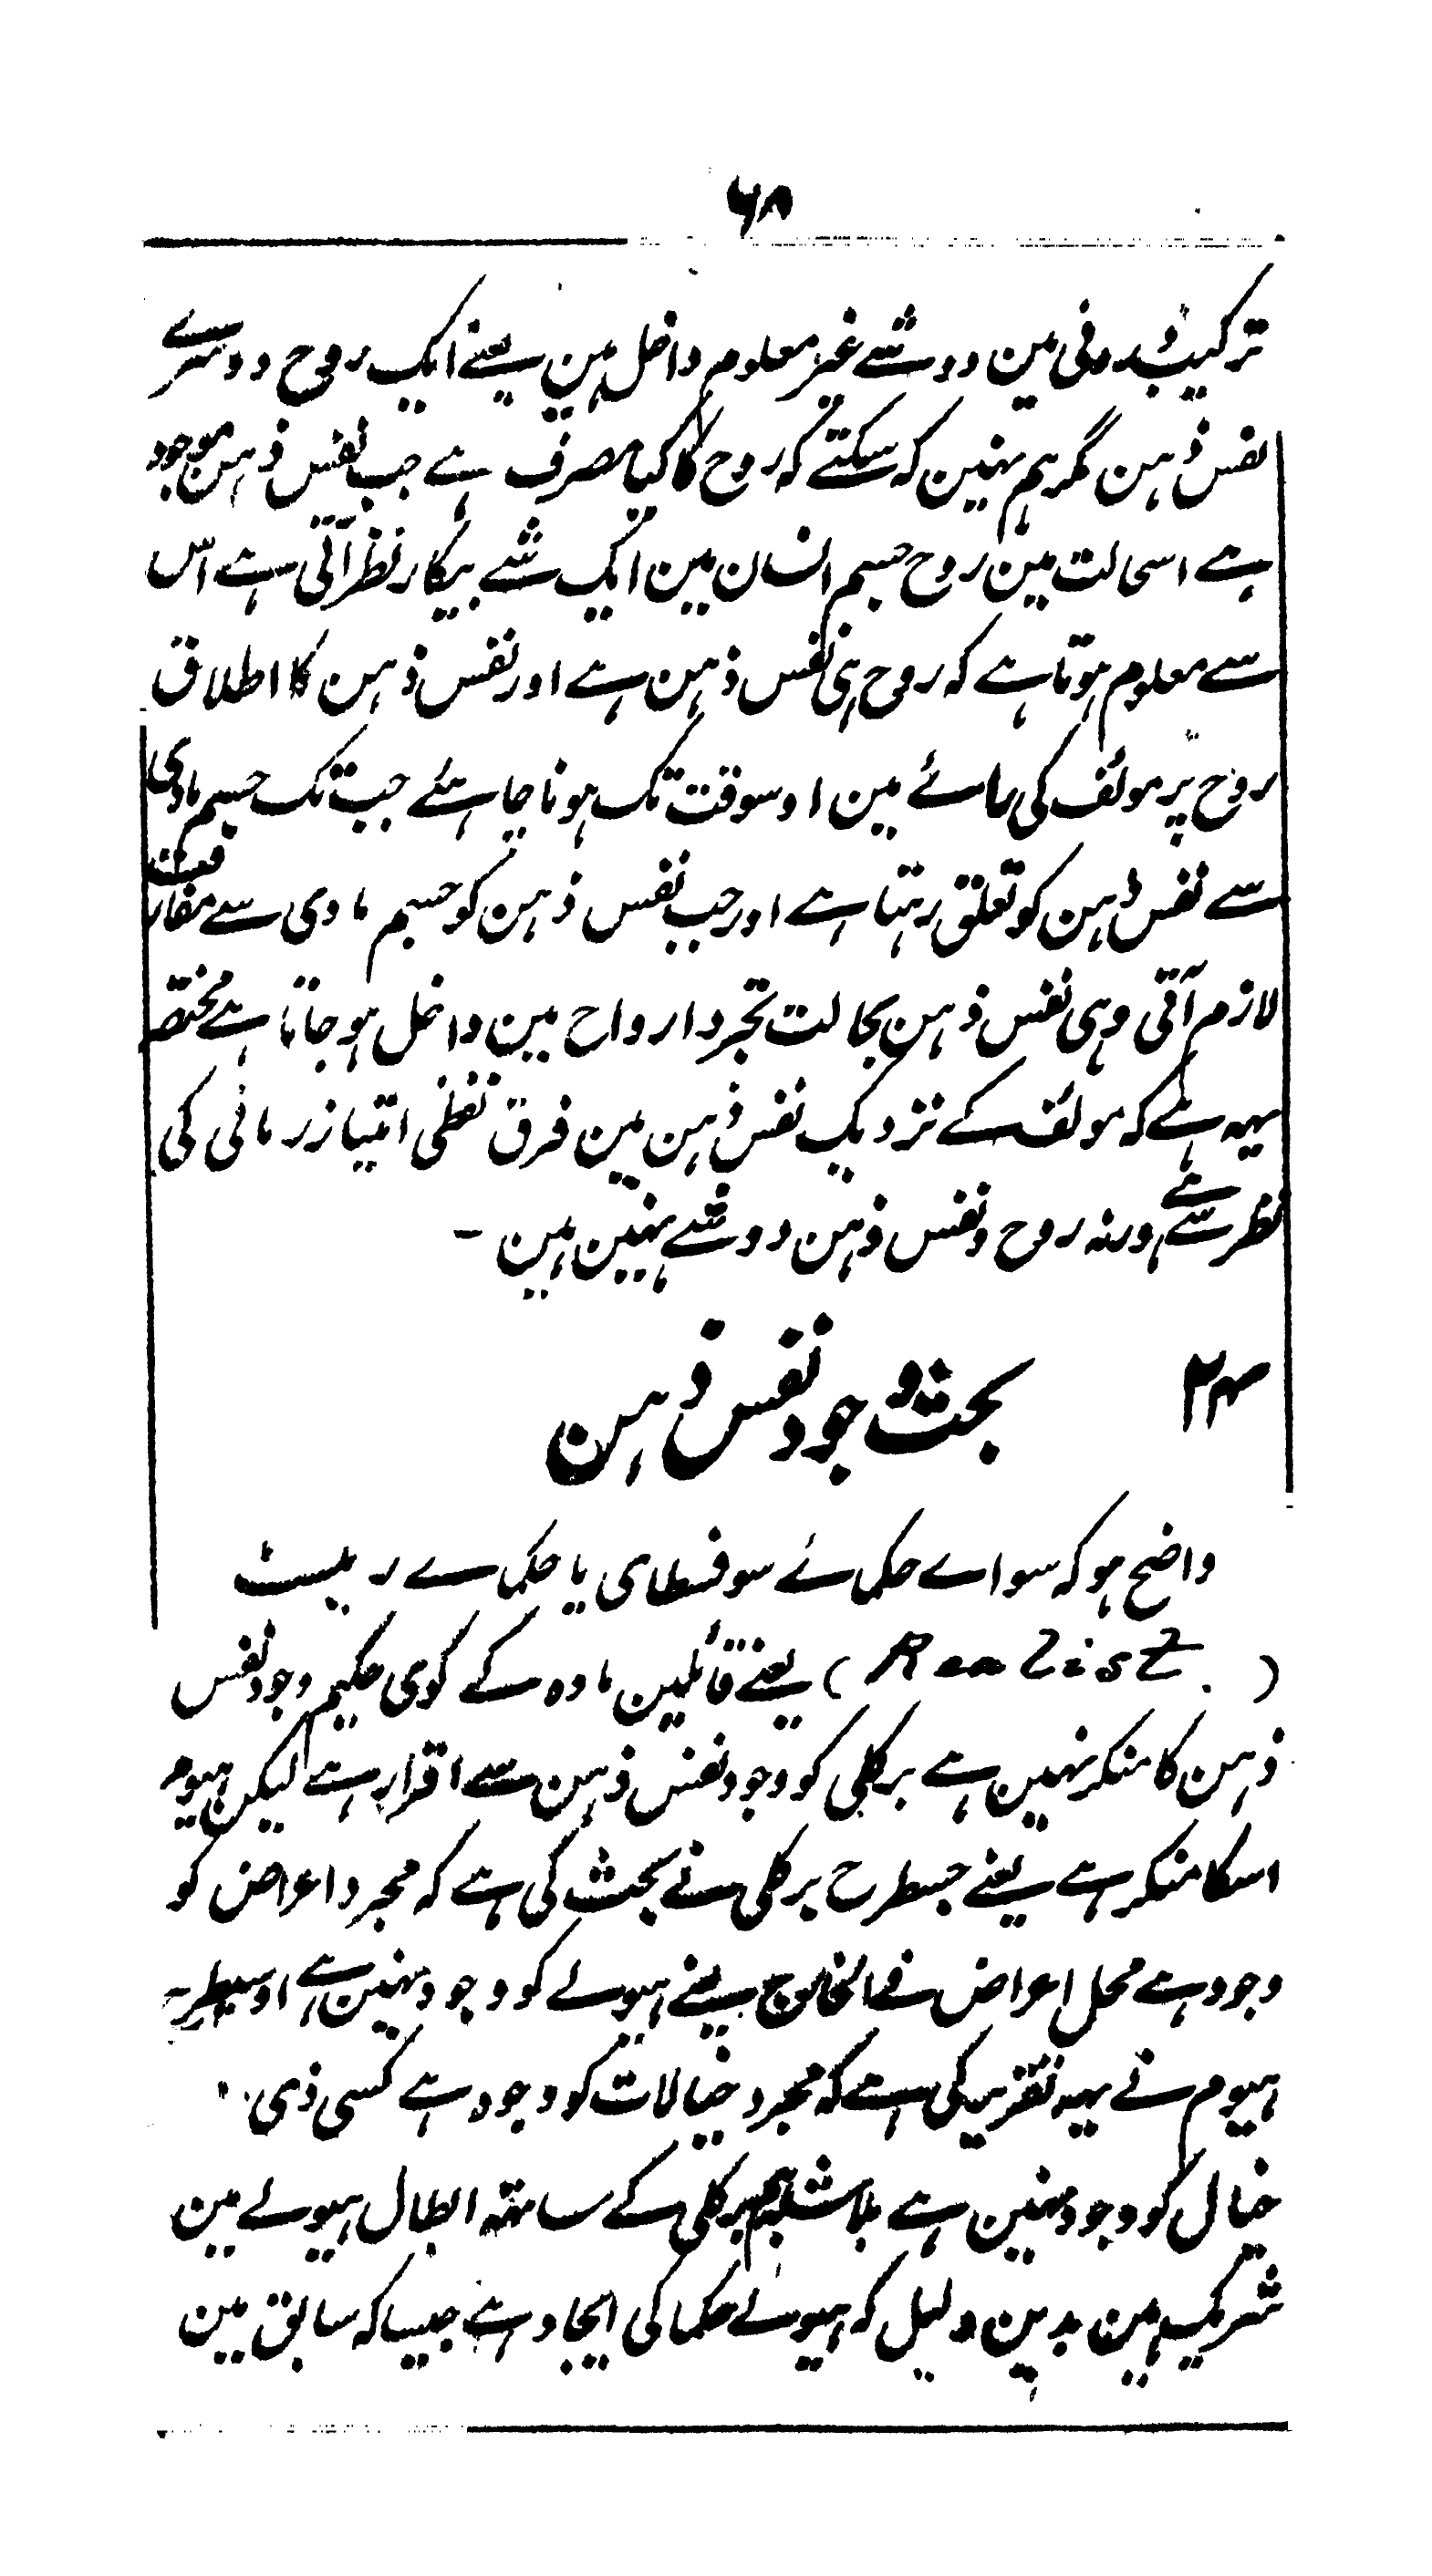 ۶۸
ترکیب بدرونی مین دو شے غیر معلوم داخل ہین یعنے ایک روح دوسرے
نفس ذہن مگر ہم نہین کہ سکتے کہ روح کا کیا مصرف ہے جب نفس ذہن موجود
ہے اسحالت مین روح جسم انسان مین ایک شے بیکار نظر آتی ہے اس
سے معلوم ہوتا ہے کہ روح ہی نفس ذہن ہے اور نفس ذہن کا اطلاق
روح پر مولف کی رائے مین اوسوقت تک ہونا چاہئے جب تک جسم مادی
سے نفس ذہن کو تعلق رہتا ہے اور جب نفس ذہن کو جسم مادی سے مفارقت
لازم آتی وہی نفس ذہن بحالت تجرد ارواح مین داخل ہو جاتا ہے مختصر
یہہ ہے کہ مولف کے نزدیک نفس ذہن مین فرق لفظی امتیاز زمانی کی
نظر سے ہے ورنہ روح و نفس ذہن دو شے نہین ہین ـ
۲۴ بحث وجود نفس ذہن
واضح ہو کہ سواے حکمائے سوفسطای یا حکماے ریلسٹ
( Realist. ) یعنے قائلین مادہ کے کوی حکیم وجود نفس
ذہن کا منکر نہین ہے برکلی کو وجود نفس ذہن سے اقرار ہے لیکن ہیوم
اسکا منکر ہے یعنے جسطرح برکلی نے بحث کی ہے کہ مجرد اعراض کو
وجود ہے محل اعراض فے الخارج یعنے ہیولے کو وجود نہین ہے اوسیطرح
ہیوم نے یہہ تقریر کی ہے کہ مجرد خیالات کو وجود ہے کسی ذی
خیال کو وجود نہین ہے بلاشبہ ہم برکلی کے ساتہہ ابطال ہیولے مین
شریک ہین بدین دلیل کہ ہیولے حکما کی ایجاد ہے جیسا کہ سابق مین